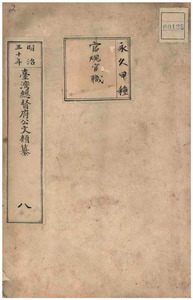 2
永久甲種
官規官職
明治
三十年
臺灣總督府公文類纂
八